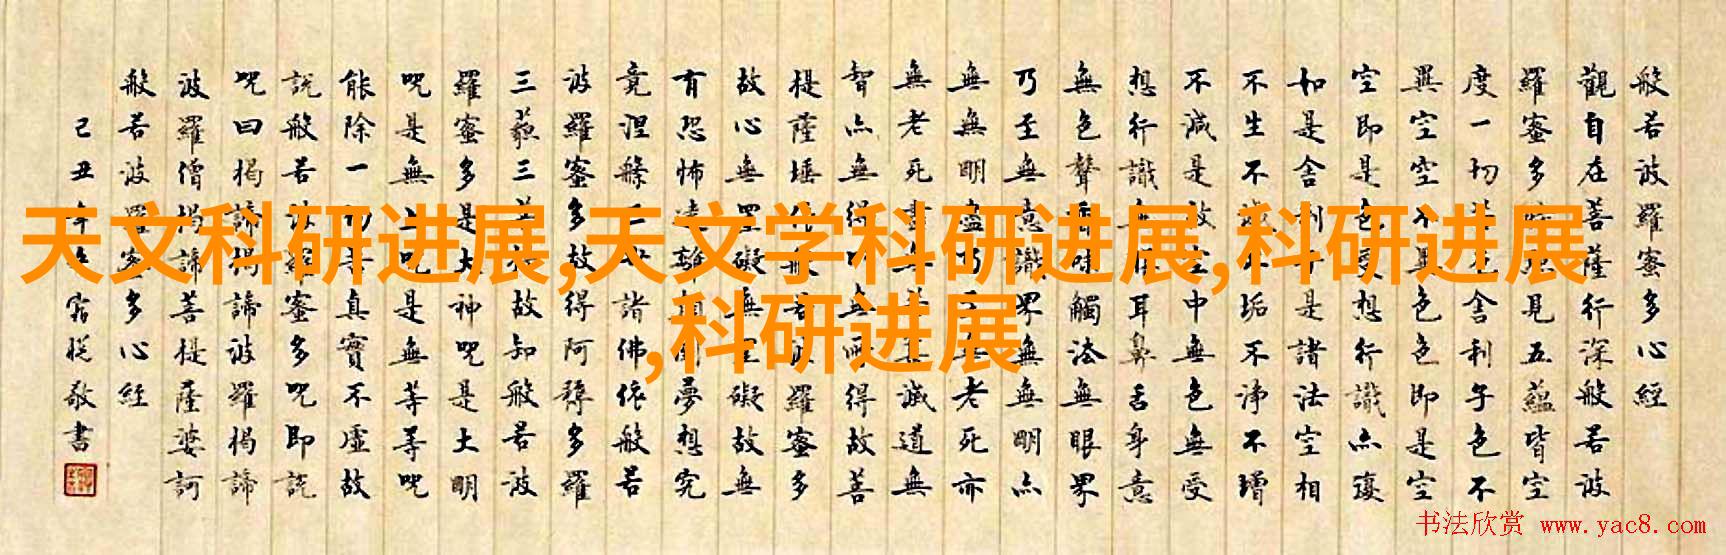 般若波羅蜜多心經
觀自在菩薩行深般若波
羅蜜多時照見五蘊皆空
度一切苦厄舍利子色不
異空空不異色色即是空
空即是色受想行識亦復
如是舍利子是諸法空相
不生不滅不垢不淨不增
不減是故空中無色無受
想行識無眼耳鼻舌身意
無色聲香味觸法無眼界
乃至無意識界無無明亦
無無明盡乃至無老死亦
無老死盡無苦集滅道無
智亦無得以無所得故菩
提薩埵依般若波羅蜜多
故心無罣礙無罣礙故無
有恐怖遠離顛倒夢想究
竟涅槃三世諸佛依般若
波羅蜜多故得阿耨多羅
三藐三菩提故知般若波
羅蜜多是大神呪是大明
呪是無上呪是無等等呪
能除一切苦真實不虛故
說般若波羅蜜多呪即說
呪曰揭諦揭諦波羅揭諦
波羅僧揭諦菩提薩婆訶
般若波羅蜜多心經
己丑年冬敬書
天文科研进展,天文学科研进展,科研进展
,科研进展
书法欣赏 www.yac8.com